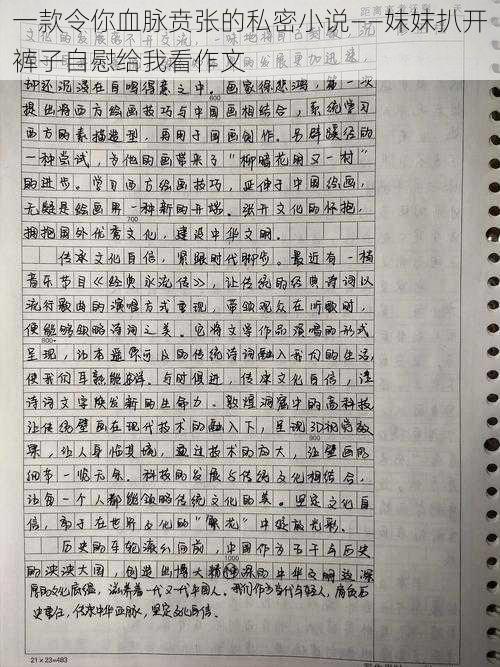 一款令你血脉贲张的私密小说——妹妹扒开
裤子自慰给我看作文
提出将西方绘画技巧与中国画相结合,系统学习
西方的素描造型,再用于国画创作。另辟蹊径的
一种尝试,为他的画带来了“柳暗花明又一村”
的进步。学习西方绘画技巧,延伸于中国绘画,
无疑是绘画界一种新的开端。张开文化的怀抱,
700
拥抱国外优秀文化,建设中华文明。
传承文化自信,紧跟时代脚步。最近有一档
音乐节目《经典永流传》,让传统的经典诗词以
流行歌曲的演唱方式重现,带领观众在听歌时,
便能够领略诗词之美。它将文学作品演唱的形式
800
呈现,让本遥不可及的传统诗词融入我们的生活
使我们耳熟能详。与时俱进,传承文化自信,让
诗词文字焕发新的生命力。敦煌洞窟中的高科技
让传统壁画在现代技术的融入下,呈现3D相片效
果,让人身临其境,通过技术的放大,让壁画的
细节一览无余。科技的发展与传统文化相结合,
让每一个人都能领略传统文化的美。坚定文化自
信,帝于在世界文化的“繁花”中绽放光彩。
历史的车轮滚滚向前,中国作为五千年历史
1000
的泱泱大国,创造出博大精深的中华文明源深
厚的文化底蕴,滋养着一代又一代中国人。我们作为当代年轻人,肩负历
史责任,传承中华血脉,坚定文化自信。
21×23=483